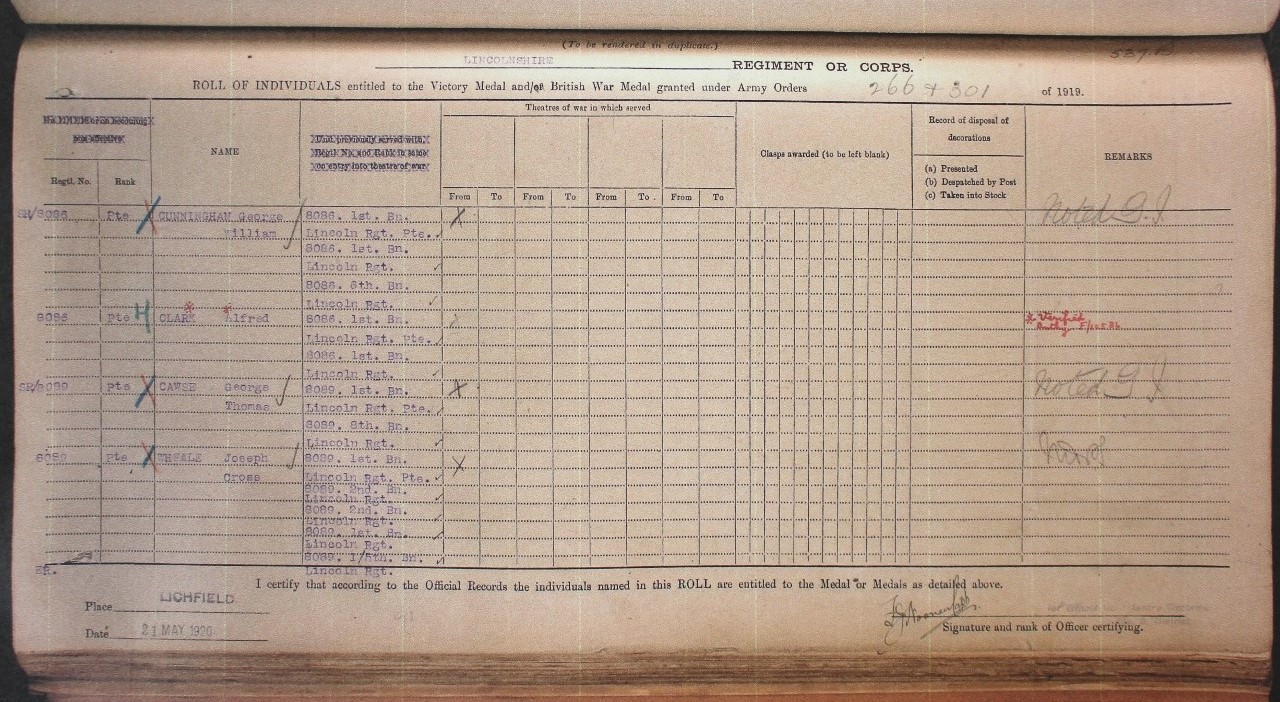 (To be rendered in duplicate.)
LINCOLNSHIRE REGIMENT OR CORPS.
ROLL OF INDIVIDUALS entitled to the Victory Medal and/or British War Medal granted under Army Orders 266 & 301 of 1919.
Theatres of war in which served
Record of disposal of
decorations
Unit previously served with,
Regtl No. and Rank in same
on entry into theatre of war
NAME
Clasps awarded (to be left blank)
REMARKS
(a) Presented
(b) Despatched by Post
(c) Taken into Stock
Regtl. No. Rank
From To From To From To. From To
SR/8086 Pte X CUNNINGHAM George 8086. 1st. Bn. X Noted G.I.
William Lincoln Rgt. Pte.
8086. 1st. Bn.
Lincoln Rgt.
8086. 8th. Bn.
Lincoln Rgt.
8086 Pte H CLARK * Alfred 8086. 1st. Bn. * Verified
Lincoln Rgt. Pte.
8086. 1st. Bn.
Lincoln Rgt.
SR/8089 Pte X CAWSE George 8089. 1st. Bn. X Noted G I
Thomas Lincoln Rgt. Pte.
8089. 8th. Bn.
Lincoln Rgt.
8089 Pte X WHEALE Joseph 8089. 1st. Bn. X
Cross Lincoln Rgt. Pte.
8089. 2nd. Bn.
Lincoln Rgt.
8089. 2nd. Bn.
Lincoln Rgt.
8089. 1st. Bn.
Lincoln Rgt.
8089. 1/5th. Bn.
ER. Lincoln Rgt.
I certify that according to the Official Records the individuals named in this ROLL are entitled to the Medal or Medals as detailed above.
Place LICHFIELD
Date 21 MAY 1920
Signature and rank of Officer certifying.